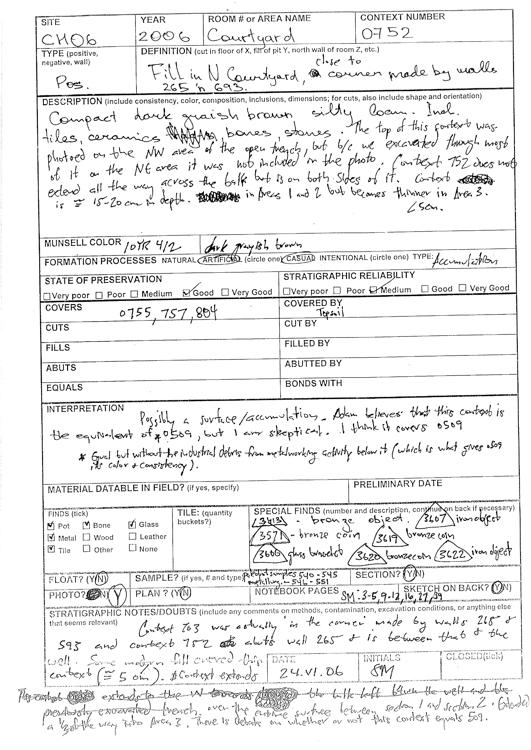 SITE YEAR ROOM # or AREA NAME CONTEXT NUMBER
CH06 2006 Courtyard 0752
TYPE (positive, negative, wall) DEFINITION (cut in floor of X, fill of pit Y, north wall of room Z, etc.)
Pos. Fill in N Courtyard, close to corner made by walls
265 n 693.
DESCRIPTION (include consistency, color, composition, inclusions, dimensions; for cuts, also include shape and orientation)
Compact dark graish brown silty loam. Incl.
tiles, ceramics bones, stones. The top of this context was
photoed on the NW area of the open trench, but b/c we excavated through most
of it on the NE area it was not included in the photo. Context 752 does not
extend all the way across the balk but is on both sides of it. Context
is ≅ 15-20 cm in depth. in Areas 1 and 2 but becomes thinner in Area 3.
<5cm.
MUNSELL COLOR 10YR 4/2 dark grayish brown
FORMATION PROCESSES NATURAL ARTIFICIAL (circle one) CASUAL INTENTIONAL (circle one) TYPE: Accumulation
STATE OF PRESERVATION STRATIGRAPHIC RELIABILITY
Very poor Poor Medium Good Very Good Very poor Poor Medium Good Very Good
COVERS 0755, 757, 804 COVERED BY Topsoil
CUTS CUT BY
FILLS FILLED BY
ABUTS ABUTTED BY
EQUALS BONDS WITH
INTERPRETATION
Possibly a surface/accumulation - Adam believes that this context is
the equivalent of *0509, but I am skeptical. I think it covers 0509
* Equal but without the industrial debris from metalworking activity below it (which is what gives 0509
its color & consistency).
MATERIAL DATABLE IN FIELD? (if yes, specify) PRELIMINARY DATE
FINDS (tick) TILE: (quantity buckets?) SPECIAL FINDS (number and description, continue on back if necessary)
Pot Bone Glass
Metal Wood Leather
Tile Other None
- bronze object. 3607 iron object
3571 - bronze coin 3617 bronze coin
3608 glass bracelet 3620 bronze coin 3622 iron object
FLOAT? (Y/N) SAMPLE? (if yes, # and type) samples 540-545
546-551 SECTION? (Y/N)
PHOTO? Y PLAN? (Y/N) NOTEBOOK PAGES SM: 3-5, 9-12, 16, 27, 39 SKETCH ON BACK? (Y/N)
STRATIGRAPHIC NOTES/DOUBTS (include any comments on methods, contamination, excavation conditions, or anything else that seems relevant)
Context 703 was actually in the corner made by walls 265 &
593 and context 752 abuts wall 265 & is between that & the
well. Some modern fill covered this
context (≅ 5 cm). *Context extends
DATE 24.VI.06 INITIALS SM CLOSED (tick)
This context extends to the W towards the balk left between the well and the
previously excavated trench, over the entire surface between section 1 and section 2. Extends
a 1/3 of the way into Area 3. There is debate on whether or not this context equals 509.